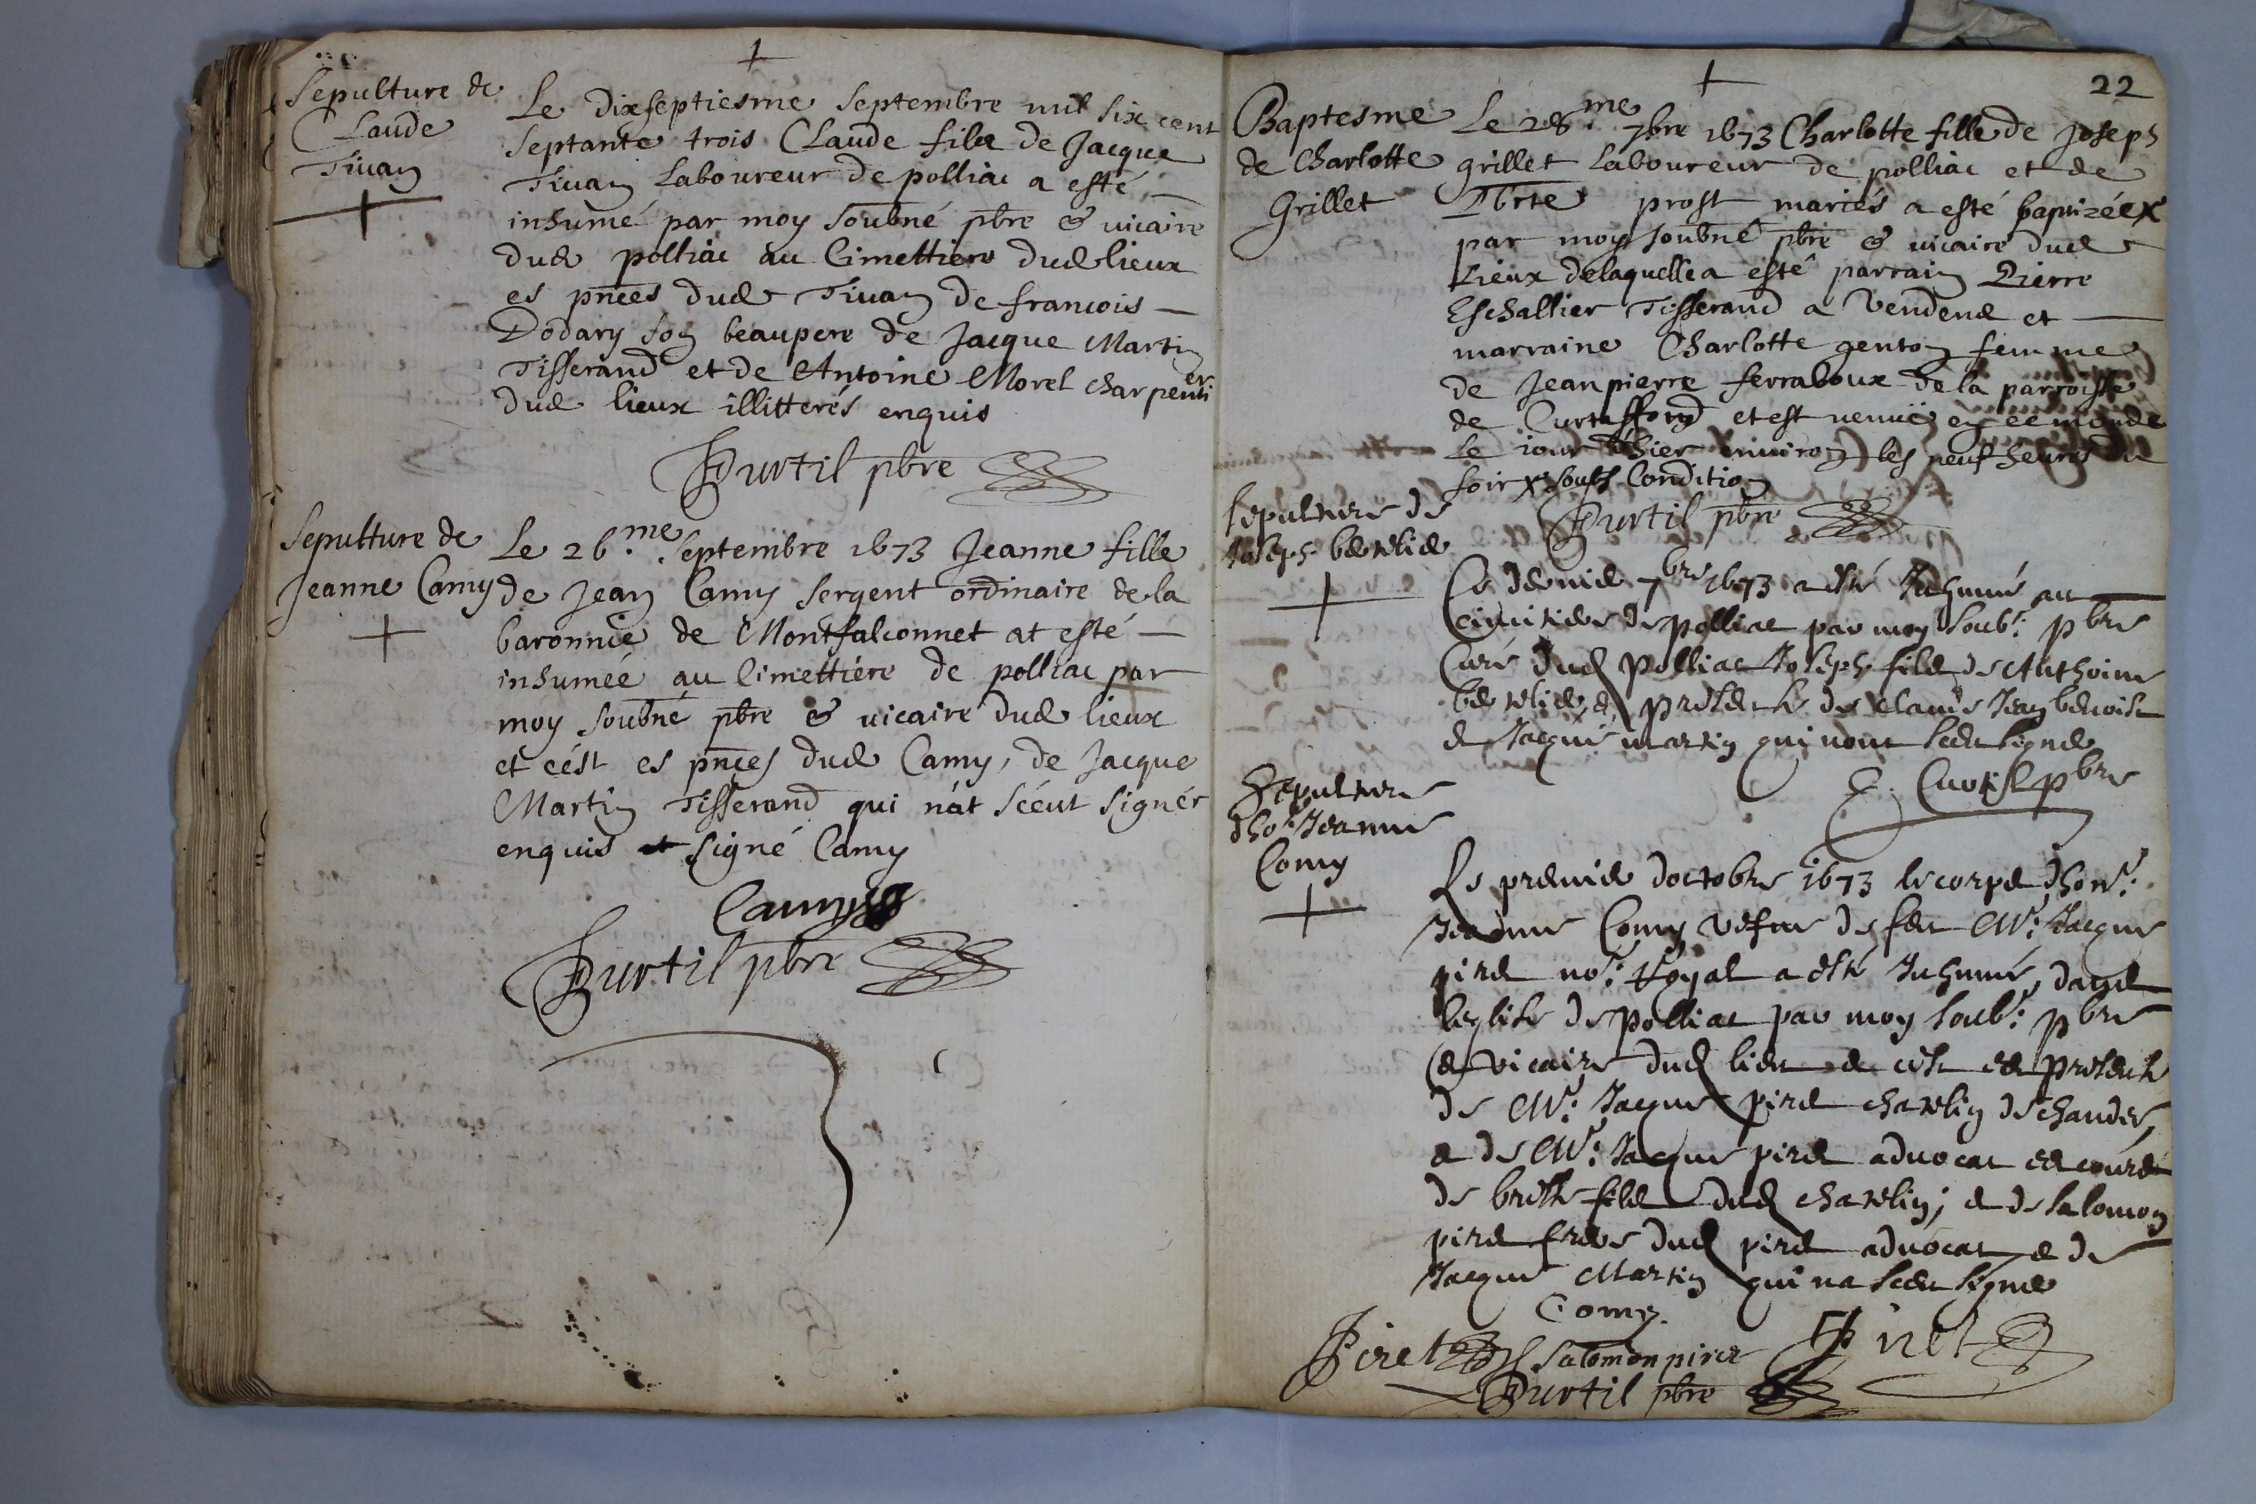 Sepulture de
Claude
Tivan
Le dixseptiesme septembre mil six cent
septante trois Claude filz de Jacque
Tivan Laboureur de polliac a esté
inhumé par moy soubné pbre & vicaire
dud polliac au Cimettiere dud lieux
es pnces dud Tivan de francois
Dodary son beaupere de Jacque Martin
Tisserand et de Antoine Morel charpentier
dud lieux illitterés enquis
Curtil pbre
Sepulture de
Jeanne Camy
Le 26.me septembre 1673 Jeanne fille
de Jean Camy sergent ordinaire de la
baronnie de Montfalconnet at esté
inhumée au Cimettiére de polliac par
moy soubné pbre & vicaire dud lieux
et cést es pnces dud Camy, de Jacque
Martin Tisserand qui n'at scéut signér
enquis et signé Camy
Camy
Curtil pbre
22
Baptesme
de Charlotte
Grillet
Le 28.me 7bre 1673 Charlotte fille de Joseph
grillet Laboureur de polliac et de
prost mariés a esté baptizée x
par moy soubné pbre & vicaire dud
Lieux de laquelle a esté parrain Pierre
Eschallier Tisserand a Vendene et
marraine Charlotte genton femme
de Jean pierre ferraboux de la parroisse
de Curtaffond et est venuë en ce monde
le iour d'hier environ les neuf heures du
soir x soubs Condition
Curtil pbre
Sepulture de
Joseph
Ce dernier 7bre 1673 a esté Inhumé au
Cimitiere de polliat par moy soub.: pbre
Curé dud Polliat Joseph filz de Anthoine
en presence de Claude Jean benoist
et Jacque martin qui nont sceu signer
C. Curtil pbre
Sepulture
d'ho.: Jeanne
Comy
Le premier doctobre 1673 le corps d'hon.:
Jeanne Comy vefve de feu Mr.: Jacque
piret no.: Royal a esté Inhumé dans
leglise de polliat par moy soub.: pbre
et vicaire dud lieu et cest en presence
de Mr.: Jacque piret chatelin de chandée,
et de Mr.: Jacque piret advocat es cours
de bresse filz dud chatelin; et de Salomon
piret frere dud piret advocat et de
Jacque Martin qui na sceu signer
Comy.
Piret Salomon piret Piret
Curtil pbre